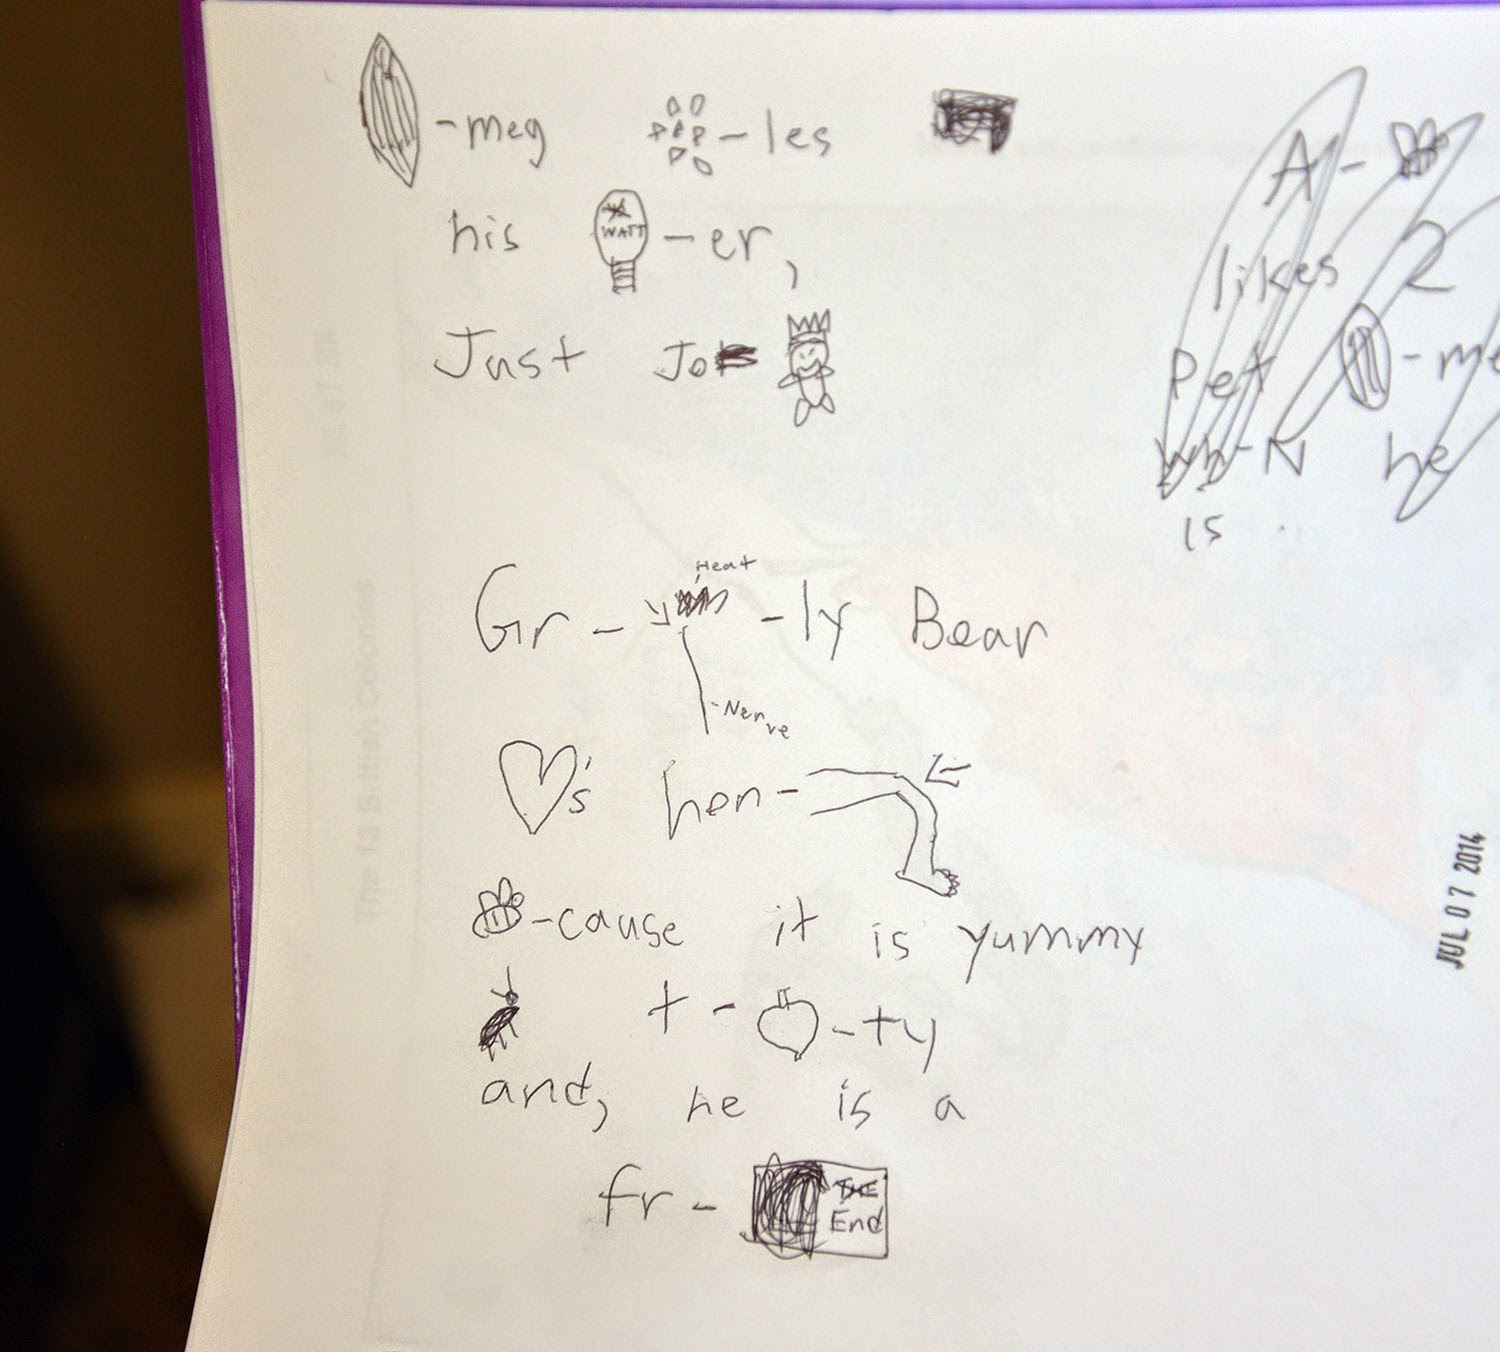 -meg -les
his WATT -er,
Just Jo
A-
likes 2
Pet -me
wh-N he
is
Heat
Gr- -ly Bear
-Nerve
's hen-
-cause it is yummy
t- -ty
and, he is a
fr- THE
End
JUL 07 2014
The 13 British Colonies